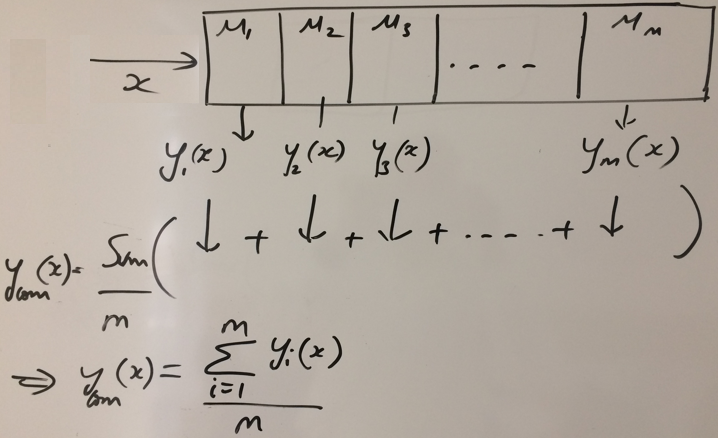 M₁ M₂ M₃ .... Mₘ
x
y₁(x) y₂(x) y₃(x) yₘ(x)
y_com(x) = Sum/m ( ↓ + ↓ + ↓ + ..... + ↓ )
⇒ y_com(x) = ∑_{i=1}^{m} yᵢ(x) / m